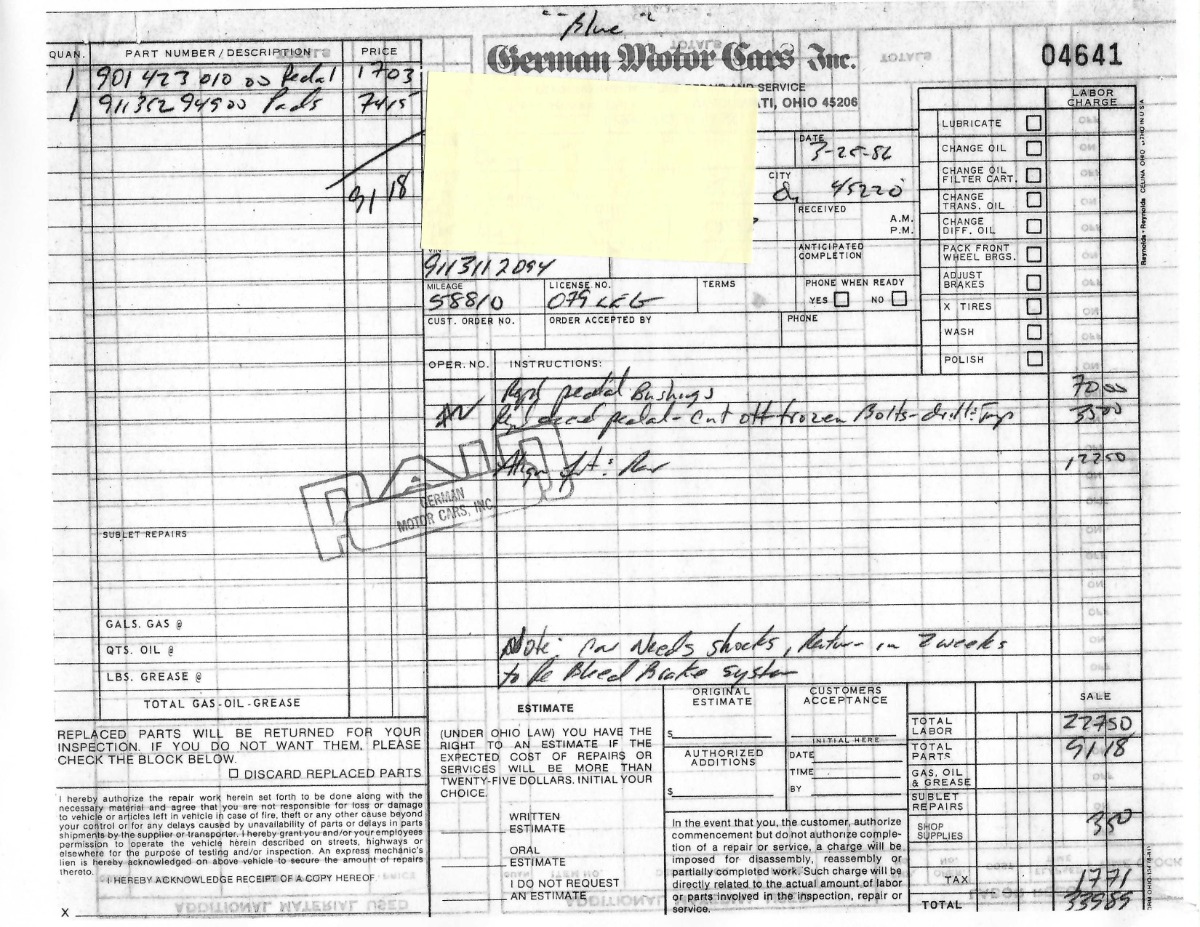 "Blue"
German Motor Cars Inc.
04641
AND SERVICE
OHIO 45206
QUAN. PART NUMBER / DESCRIPTION PRICE
1 901 423 010 00 Pedal 17 03
1 911 352 949 00 Pads 74 15
91 18
SUBLET REPAIRS
GALS. GAS @
QTS. OIL @
LBS. GREASE @
TOTAL GAS-OIL-GREASE
REPLACED PARTS WILL BE RETURNED FOR YOUR
INSPECTION. IF YOU DO NOT WANT THEM, PLEASE
CHECK THE BLOCK BELOW.
DISCARD REPLACED PARTS
I hereby authorize the repair work herein set forth to be done along with the
necessary material and agree that you are not responsible for loss or damage
to vehicle or articles left in vehicle in case of fire, theft or any other cause beyond
your control or for any delays caused by unavailability of parts or delays in parts
shipments by the supplier or transporter. I hereby grant you and/or your employees
permission to operate the vehicle herein described on streets, highways or
elsewhere for the purpose of testing and/or inspection. An express mechanic's
lien is hereby acknowledged on above vehicle to secure the amount of repairs
thereto.
I HEREBY ACKNOWLEDGE RECEIPT OF A COPY HEREOF
X
DATE
3-25-86
CITY
45220
RECEIVED A.M.
P.M.
ANTICIPATED
COMPLETION
9113112094
MILEAGE
58810
LICENSE NO.
079
TERMS
PHONE WHEN READY
YES NO
CUST. ORDER NO.
ORDER ACCEPTED BY
PHONE
LABOR
CHARGE
LUBRICATE
CHANGE OIL
CHANGE OIL
FILTER CART.
CHANGE
TRANS. OIL
CHANGE
DIFF. OIL
PACK FRONT
WHEEL BRGS.
ADJUST
BRAKES
X TIRES
WASH
POLISH
OPER. NO. INSTRUCTIONS:
pedal Bushings 70 00
pedal - Cut off frozen Bolts - drill & Tap 35 00
Align frt & Rear 122 50
PAID
GERMAN
MOTOR CARS, INC.
Note: Car Needs shocks, Return in 2 weeks
to Re Bleed Brake system
ESTIMATE
(UNDER OHIO LAW) YOU HAVE THE
RIGHT TO AN ESTIMATE IF THE
EXPECTED COST OF REPAIRS OR
SERVICES WILL BE MORE THAN
TWENTY-FIVE DOLLARS. INITIAL YOUR
CHOICE.
WRITTEN
ESTIMATE
ORAL
ESTIMATE
I DO NOT REQUEST
AN ESTIMATE
ORIGINAL
ESTIMATE
$
CUSTOMERS
ACCEPTANCE
INITIAL HERE
AUTHORIZED
ADDITIONS
$
DATE
TIME
BY
In the event that you, the customer, authorize
commencement but do not authorize comple-
tion of a repair or service, a charge will be
imposed for disassembly, reassembly or
partially completed work. Such charge will be
directly related to the actual amount of labor
or parts involved in the inspection, repair or
service.
SALE
TOTAL
LABOR 227 50
TOTAL
PARTS 91 18
GAS, OIL
& GREASE
SUBLET
REPAIRS
SHOP
SUPPLIES 3 50
TAX 17 71
TOTAL 339 89